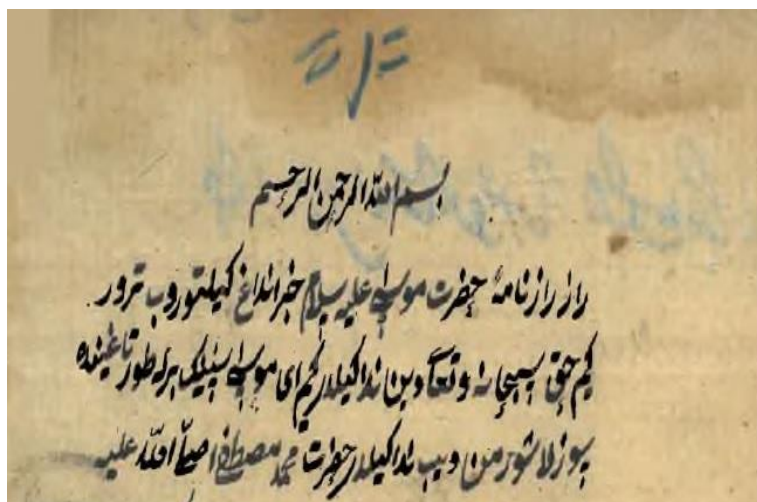 بسم الله الرحمن الرحيم
راز رازنامهٔ حضرت موسی علیه سلام خبر انداغ کیلتوروب ترور
کیم حق سبحانه وتعالی دین ندا کیلدی کیم ای موسی سنینک برله طور تاغینده
سوزلاشورمن دیب ندا کیلدی حضرت محمد مصطفی صلی الله علیه